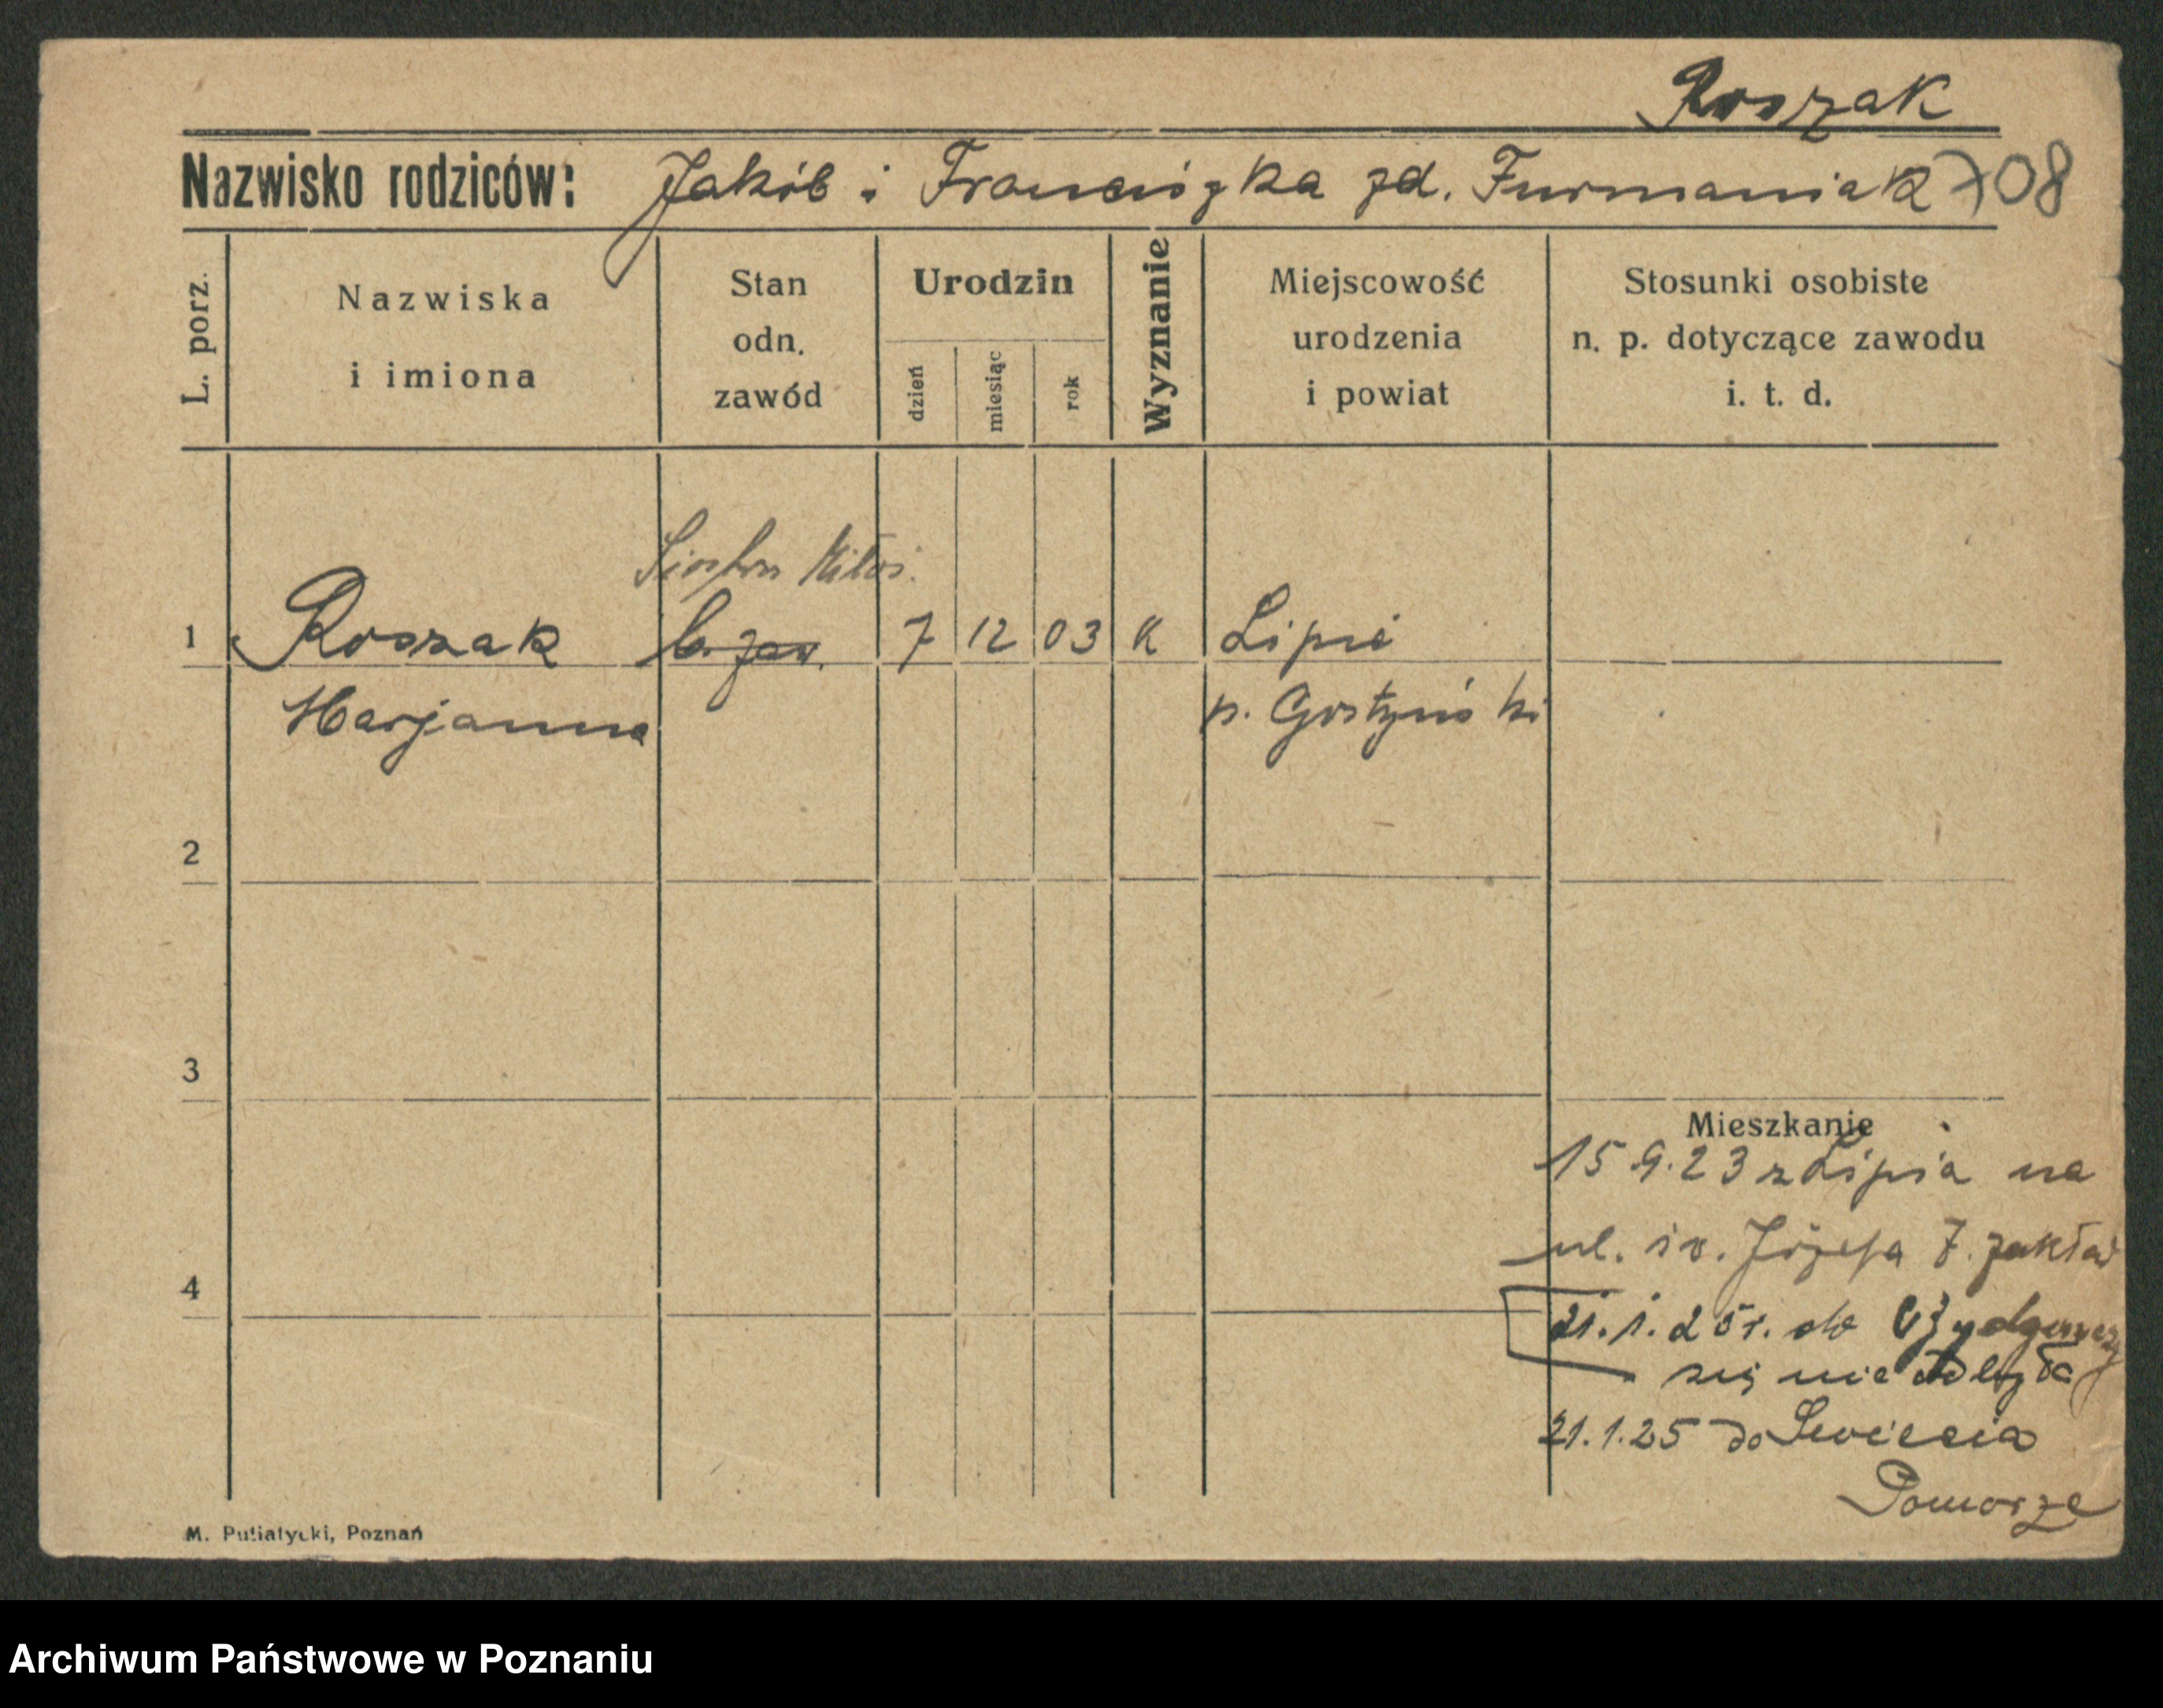 Roszak
Nazwisko rodziców: Jakób i Franciszka zd. Furmaniak 708
L. porz.
Nazwiska
i imiona
Stan
odn.
zawód
Urodzin
dzień
miesiąc
rok
Wyznanie
Miejscowość
urodzenia
i powiat
Stosunki osobiste
n. p. dotyczące zawodu
i. t. d.
Siostra Miłosi.
1 Roszak b. zaw. 7 12 03 K Lipie
Marjanna p. Gostyński
2
3
Mieszkanie
15.9.23 z Lipia na
ul. św. Józefa 7. zakład
4
21.1.25r. do Bydgoszcz
się nie odbyła
21.1.25 do Świecia
Pomorze
M. Putiatycki, Poznań
Archiwum Państwowe w Poznaniu